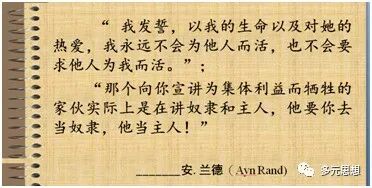 “ 我发誓，以我的生命以及对她的
热爱，我永远不会为他人而活，也不会要
求他人为我而活。”；
“那个向你宣讲为集体利益而牺牲的
家伙实际上是在讲奴隶和主人，他要你去
当奴隶，他当主人！”
_______安. 兰德（Ayn Rand）
多元思想